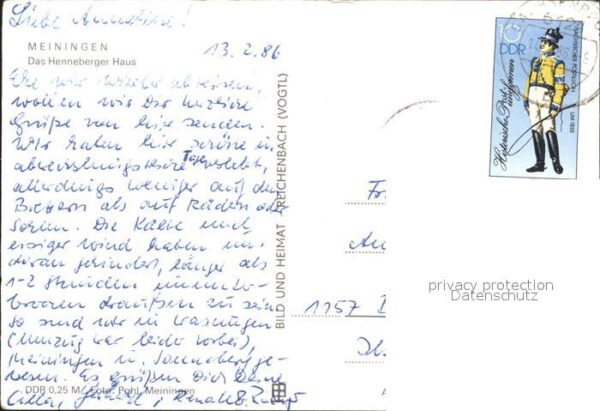 Liebe Annelore!
MEININGEN
Das Henneberger Haus
13. 2. 86
Ehe wir wieder abreisen,
wollen wir Dir herzliche
Grüße von hier senden.
Wir haben hier schöne u.
abwechslungsreiche Tage verlebt,
allerdings weniger auf den
Brettern als auf Rädern oder
Sohlen. Die Kälte und
eisiger Wind haben uns
daran gehindert, länger als
1-2 Stunden ununter-
brochen draußen zu sein
so sind wir in Wasungen
(Umzug war leider vorbei),
Meiningen u. Sonneberg ge-
wesen. Es grüßen Dich Deine
Renate
DDR 0,25 M Foto: Pohl, Meiningen
BILD UND HEIMAT REICHENBACH (VOGTL)
10
DDR
Historische Postuniformen
SÄCHSISCHER POSTILLION
UM 1850
Fr
1157
privacy protection
Datenschutz
A